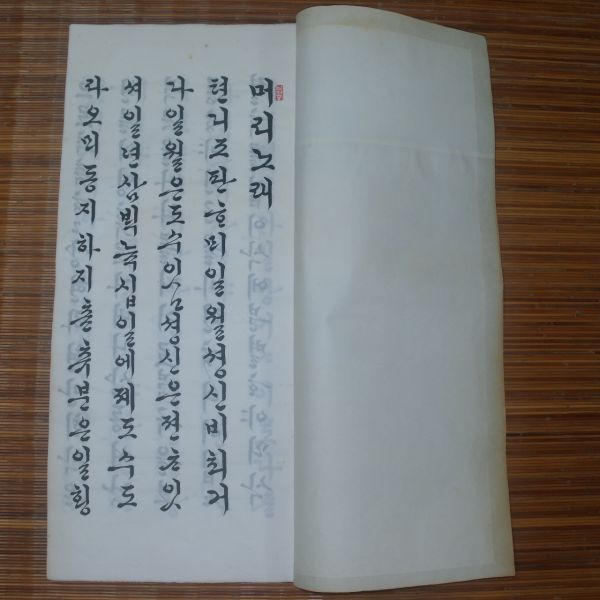 머리노래
텬디조판ᄒᆞ미일월셩신비최거
다일월은도수이스셩신은젼ᄎᆞ잇
셔일년삼빅뉵십일에졔도수도
라오미동지하지츈츄분은일횡